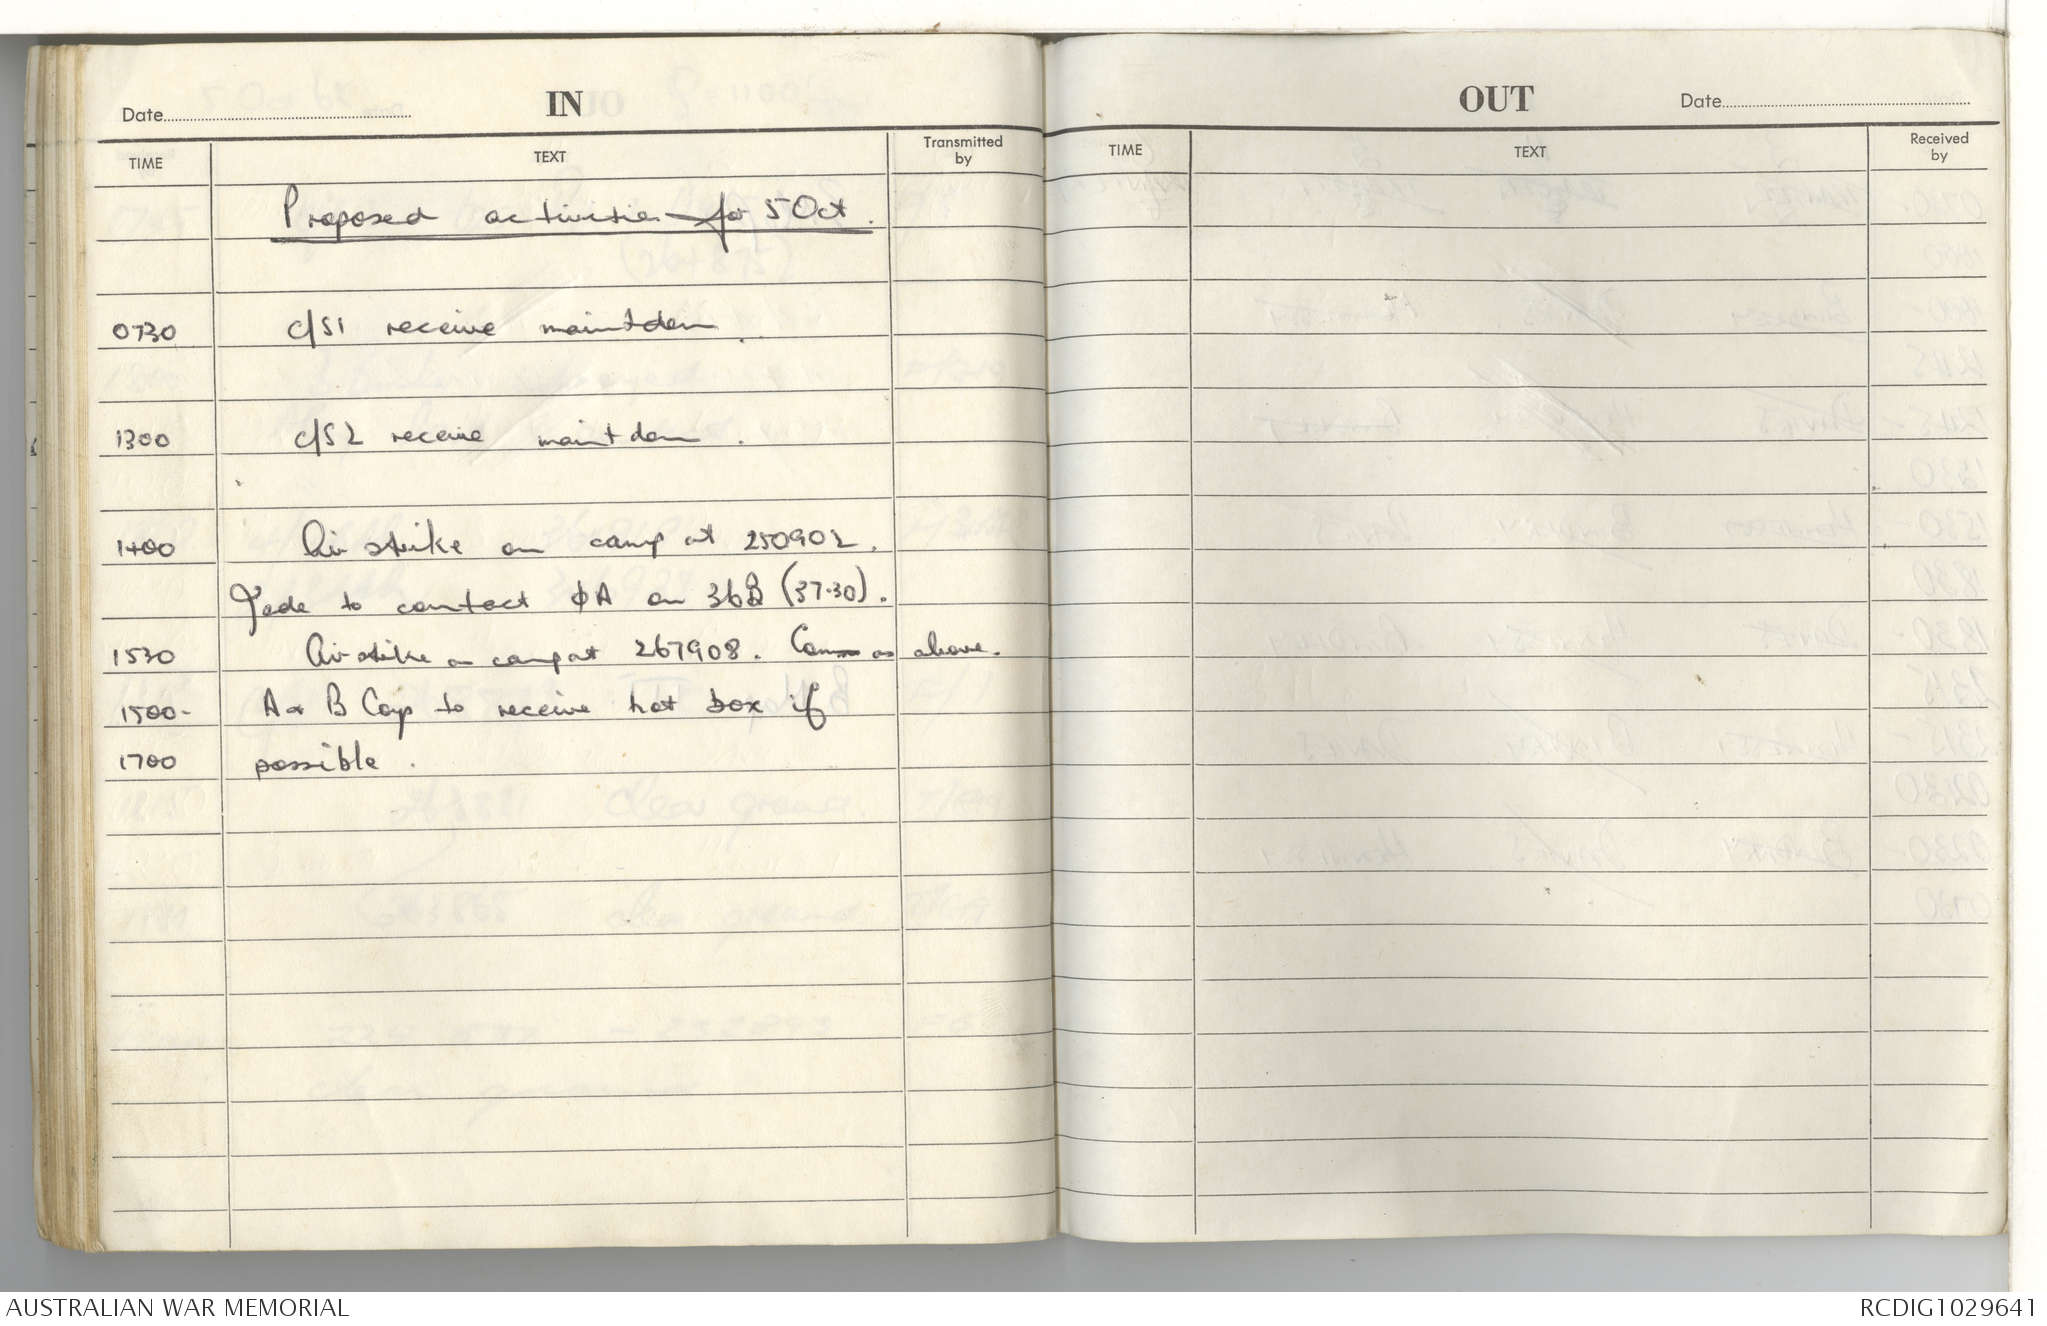 Date
IN
TIME
TEXT
Transmitted by
Proposed activities for 5 Oct.
0730 c/s1 receive maintdem.
1300 c/s2 receive maintdem.
1400 Air strike on camp at 250902.
Jade to contact ØA on 36B (37.30).
1530 Air strike on camp at 267908. Comm as above.
1500- A & B Coys to receive hot box if
1700 possible.
OUT
Date
TIME
TEXT
Received by
AUSTRALIAN WAR MEMORIAL
RCDIG1029641